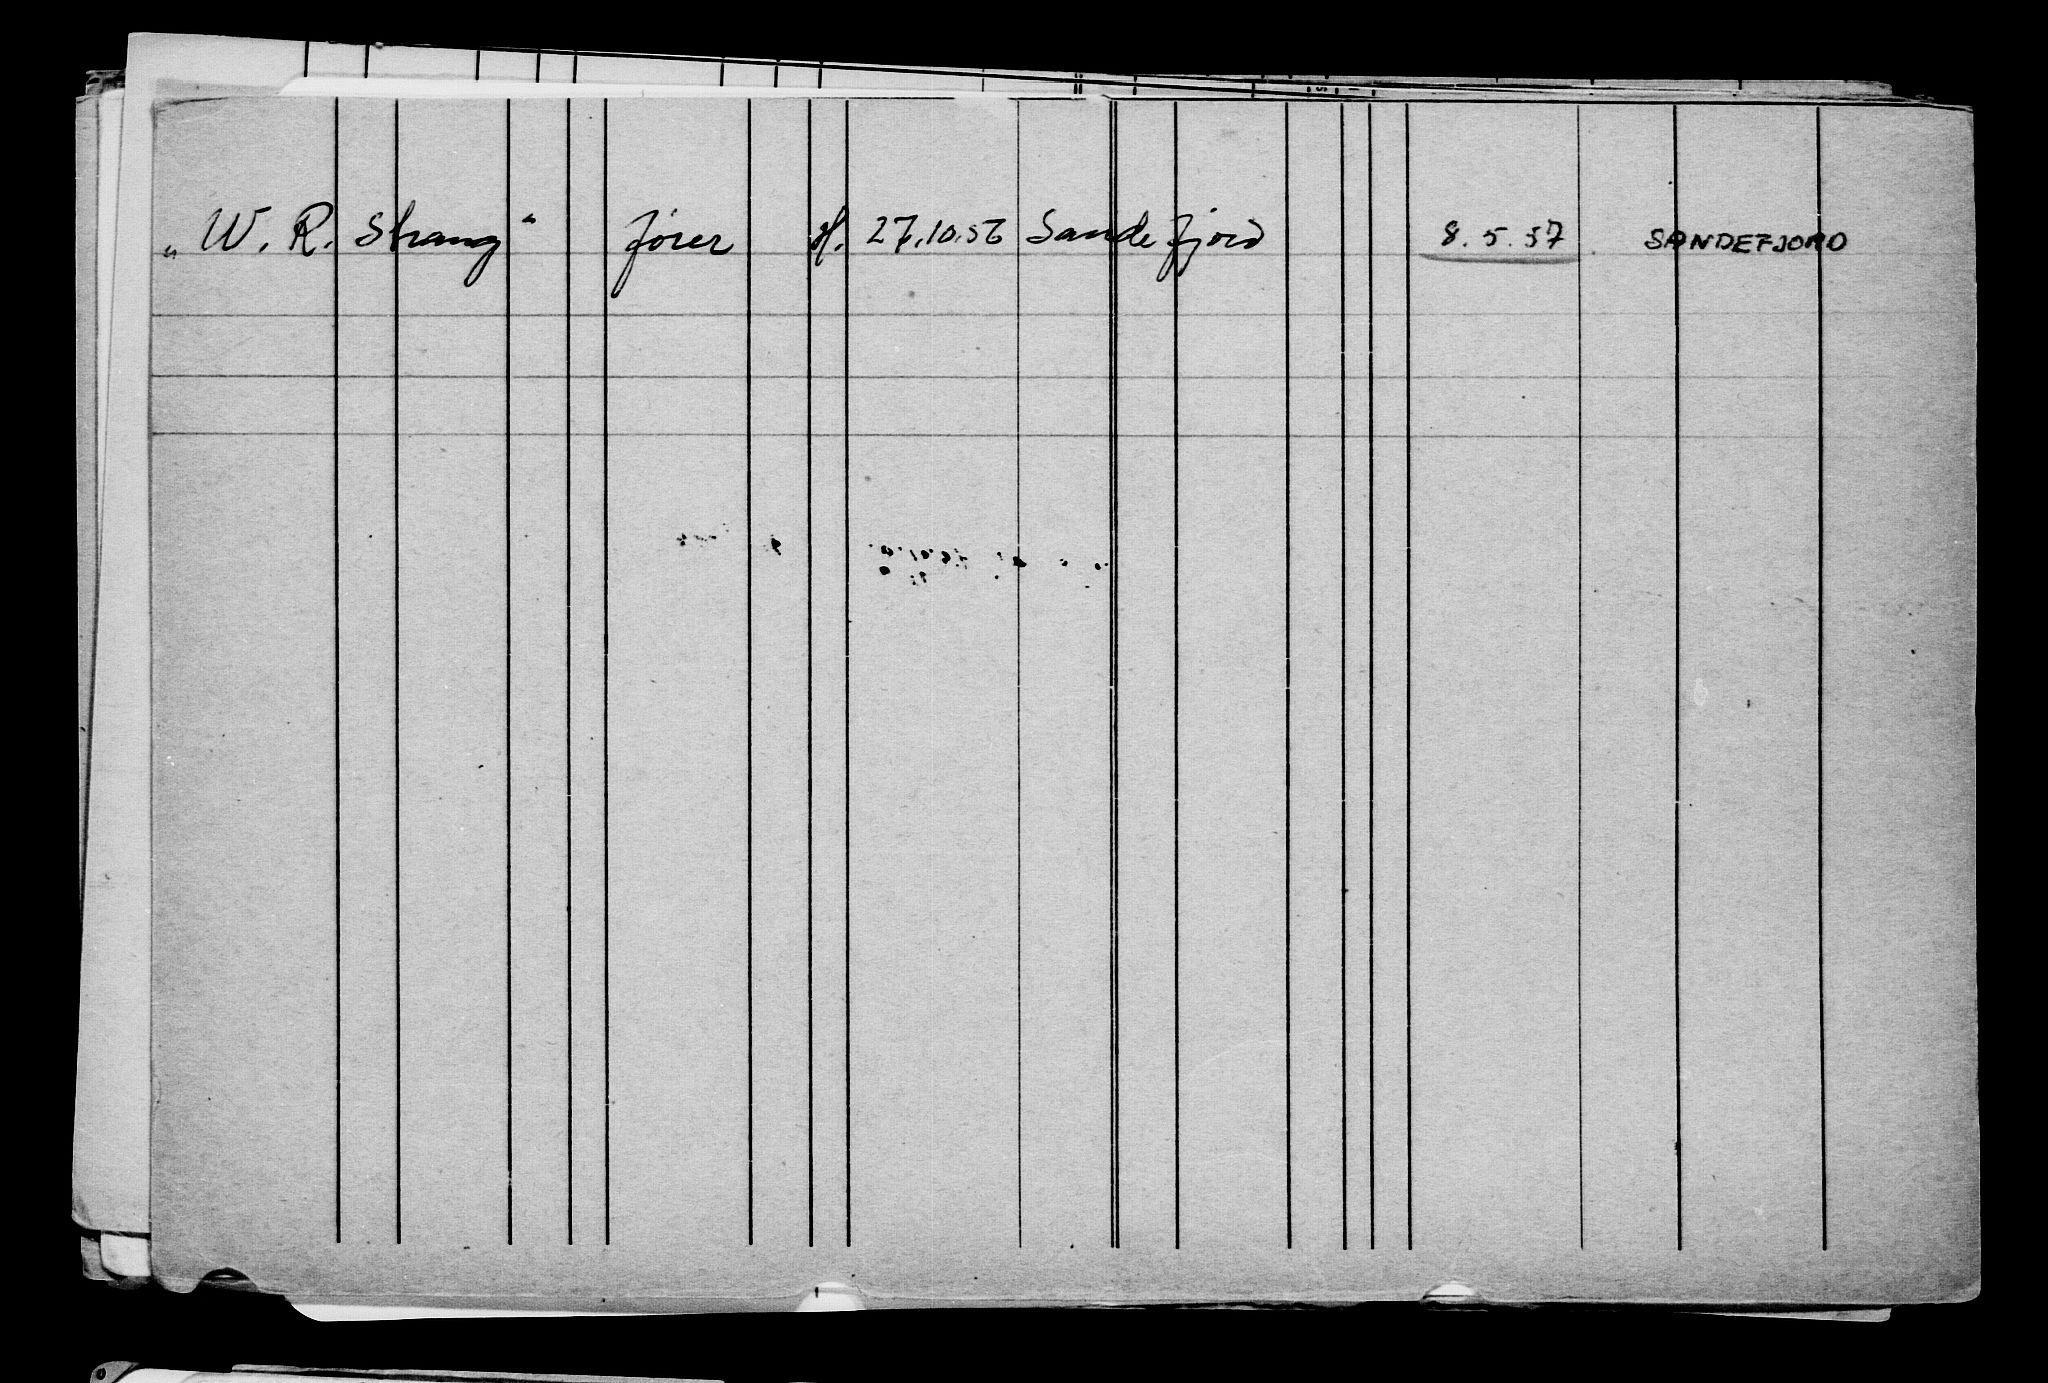 „ W. R. Strang “ fører H. 27.10.56 Sandefjord 8.5.57 SANDEFJORD